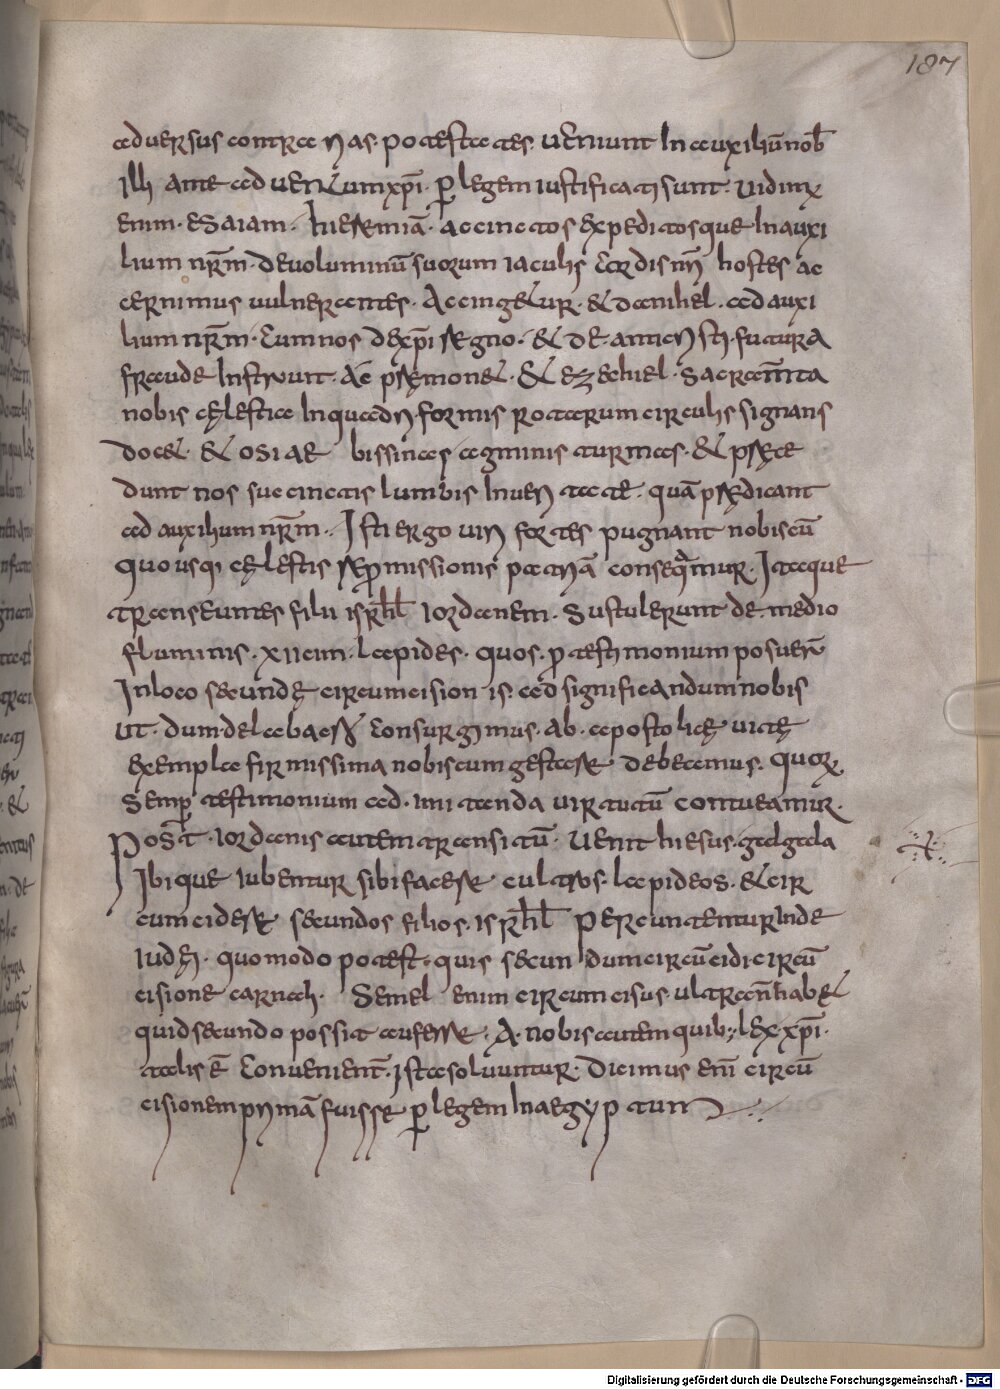 187
aduersus contrarias potestates. ueniunt In auxiliū nob̄
Illi ante aduentum xp̄i. ꝑ legem iustificati sunt. uidimꝰ
enim. esaiam. hieremiā. accinctos expeditosque In auxi
lium nr̄m. de uoluminū suorum iaculis cordis nr̄i hostes ac
cernimus uulnerantes. Accingetur. & danihel. ad auxi
lium nr̄m. cum nos de xp̄i regno. & de antichristi. futura
fraude Instruunt. Ac premonet. & ezechiel. sacram̄ta
nobis cęlestia In quadri. formis rotarum circulis signans
docet. & osiae bissinas agminis turmas. & pręce
dunt nos succinctis lumbis In ueritate. quā prędicant
ad auxilium nr̄m. Isti ergo uiri fortes pugnant nobiscū
quo usqi cęlestis repromissionis patriā consequamur. Itaque
transeuntes filii isrl̄ iordanem. sustulerunt de medio
fluminis. xiicim. lapides. quos. ꝓ testimonium posuer̄
In loco secundę circumcisionis. ad significandum nobis
ut. dum delebacrū consurgimus. ab. apostolicę uitę
exempla firmissima nobiscum gestare debeamus. quoꝝ
semꝑ testimonium ad. imitanda uirtutū contueamur.
Post. iordanis autem transitū. uenit hiesus. galgala
Ibique iubentur sibi facere cultros. lapideos. & cir
cumcidere secundos filios. isrl̄ percunctentur Inde
iudęi. quomodo potest. quis secundum circūcidi. circū
cisione carnali. Semel enim circumcisus. ultra n̄ habet
quid secundo possit auferre. A. nobis autem quib; lex xp̄i.
talis ē conuenient. Ista soluuntur. Dicimus eni circū
cisionem primā fuisse ꝑ legem In aegyptum
Digitalisierung gefördert durch die Deutsche Forschungsgemeinschaft - DFG